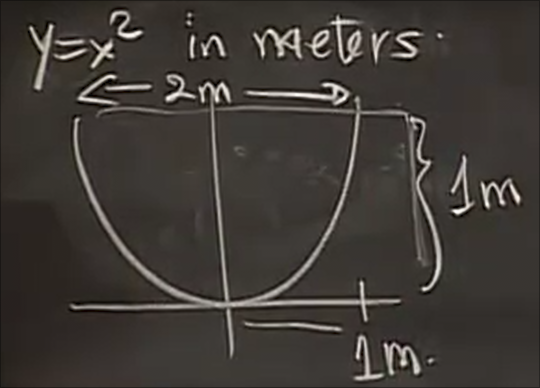 y=x² in meters.
← 2m →
1m
1m.